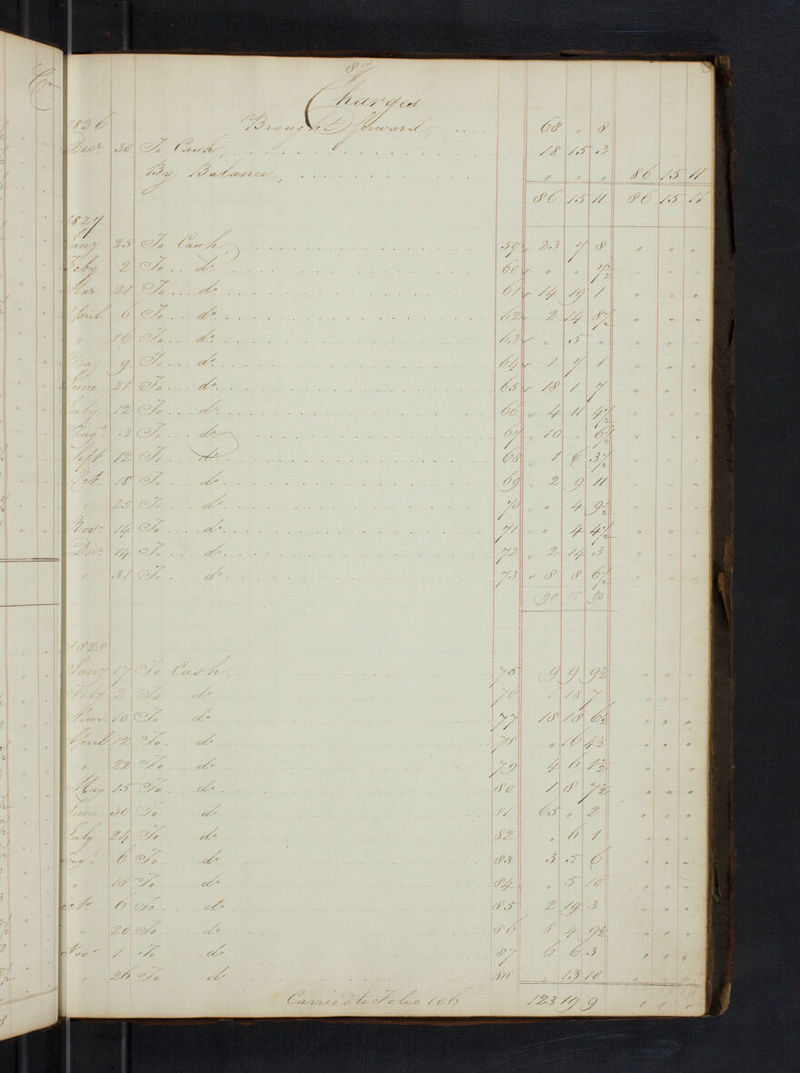 87
Charges
1826 Brought forward 68 " 8
Decr 30 To Cash, 18 15 3
By Balance, " " " 86 15 11
86 15 11 86 15 11
1827
Jany 25 To Cash 59 23 7 8 " " "
Feby 2 To do 60 " " 7½ " " "
Mar 21 To do 61 14 19 1 " " "
April 6 To do 62 2 14 8½ " " "
" 16 To do 63 " 5 " " " "
May 9 To do 64 1 7 1 " " "
June 31 To do 65 18 1 7 " " "
July 12 To do 66 4 11 4½ " " "
Augt 3 To do 67 10 " 6½ " " "
Sept 12 To do 68 1 6 3½ " " "
Oct 18 To do 69 2 9 11 " " "
" 25 To do 70 " 4 9½ " " "
Novr 14 To do 71 " 4 4½ " " "
Decr 14 To do 72 2 14 3 " " "
" 31 To do 73 8 8 6½ " " "
90 15
1828
Jany 17 To Cash 75 9 9 9½ " " "
Feby 2 To do 76 1 18 7 " " "
Mar 10 To do 77 18 18 6½ " " "
April 12 To do 78 " 16 4½ " " "
" 22 To do 79 4 6 1½ " " "
May 15 To do 80 1 8 7½ " " "
June 30 To do 81 65 " 2 " " "
July 24 To do 82 " 6 1 " " "
Augt 6 To do 83 3 5 6 " " "
" 18 To do 84 " 5 10 " " "
Oct 6 To do 85 2 19 3 " " "
" 20 To do 86 8 4 9½ " " "
Novr 1 To do 87 6 6 3 " " "
" 26 To do 88 " 13 10 " " "
Carried to Folio 106 123 19 9 " " "